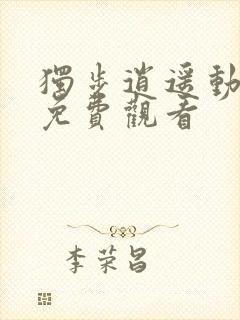 獨步逍遥動
免費觀看
李荣昌